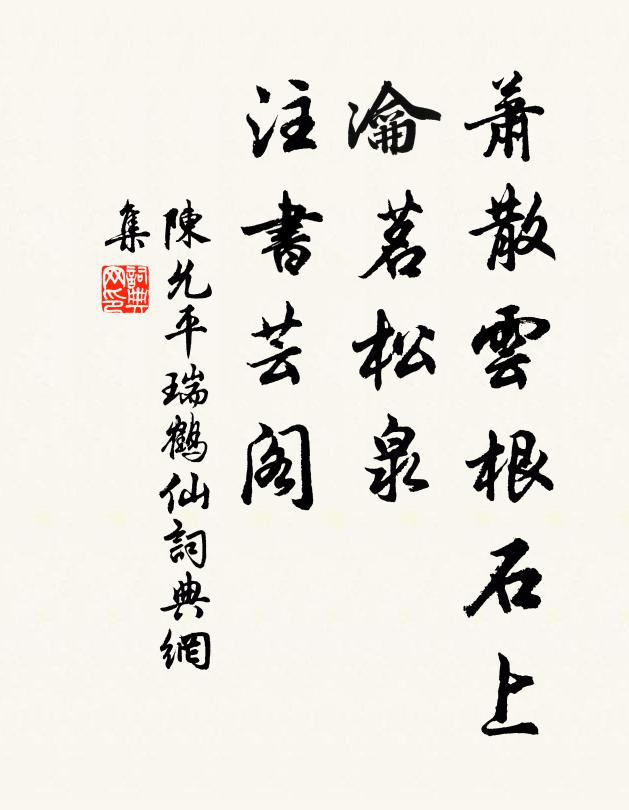 蕭散雲根石上
瀹茗松泉
注書芸閣
陳允平瑞鶴仙詞典網
集
詞典網印